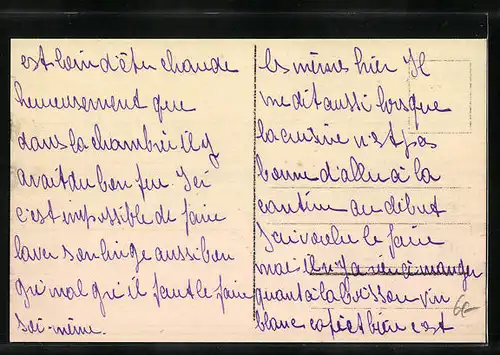 est loin d'être chaude
heureusement que
dans la chambrée il y
avait du bon feu. Ici
c'est impossible de faire
laver son linge aussi bien
que mal qu'il faut le faire
soi-même.
les mêmes hier Il
me dit aussi lorsque
la cuisine n'est pas
bonne d'aller à la
cantine au début
J'ai voulu le faire
mai il n'y a rien à manger
quant à la boisson vin
blanc café et bien c'est
6-